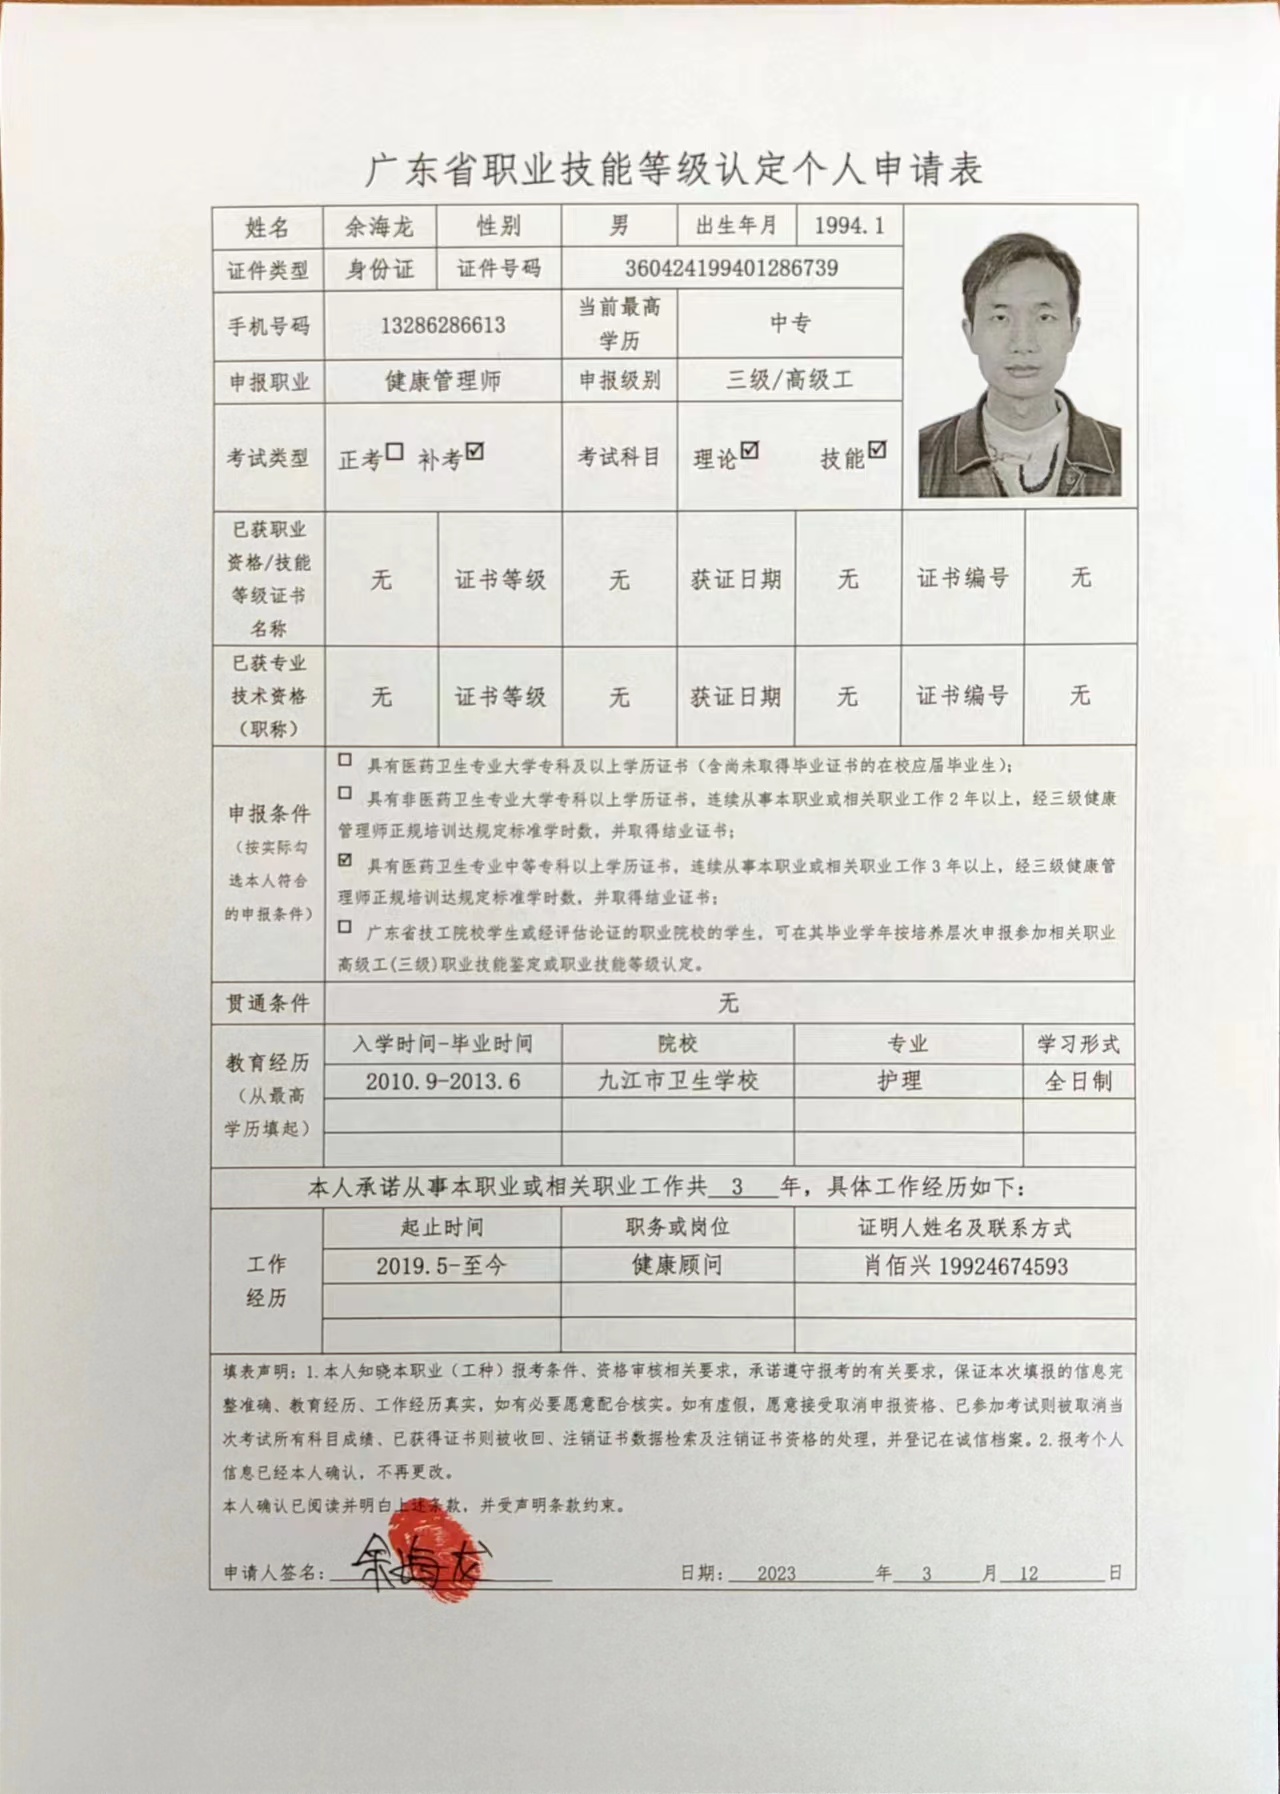 广东省职业技能等级认定个人申请表
姓名 余海龙 性别 男 出生年月 1994.1
证件类型 身份证 证件号码 360424199401286739
手机号码 13286286613 当前最高学历 中专
申报职业 健康管理师 申报级别 三级/高级工
考试类型 正考☐ 补考☑ 考试科目 理论☑ 技能☑
已获职业资格/技能等级证书名称 无 证书等级 无 获证日期 无 证书编号 无
已获专业技术资格（职称） 无 证书等级 无 获证日期 无 证书编号 无
申报条件
（按实际勾选本人符合的申报条件）
☐ 具有医药卫生专业大学专科及以上学历证书（含尚未取得毕业证书的在校应届毕业生）；
☐ 具有非医药卫生专业大学专科以上学历证书，连续从事本职业或相关职业工作2年以上，经三级健康
管理师正规培训达规定标准学时数，并取得结业证书；
☑ 具有医药卫生专业中等专科以上学历证书，连续从事本职业或相关职业工作3年以上，经三级健康管
理师正规培训达规定标准学时数，并取得结业证书；
☐ 广东省技工院校学生或经评估论证的职业院校的学生，可在其毕业学年按培养层次申报参加相关职业
高级工(三级)职业技能鉴定或职业技能等级认定。
贯通条件 无
教育经历（从最高学历填起）
入学时间-毕业时间 院校 专业 学习形式
2010.9-2013.6 九江市卫生学校 护理 全日制
本人承诺从事本职业或相关职业工作共 3 年，具体工作经历如下：
工作经历
起止时间 职务或岗位 证明人姓名及联系方式
2019.5-至今 健康顾问 肖佰兴 19924674593
填表声明：1.本人知晓本职业（工种）报考条件、资格审核相关要求，承诺遵守报考的有关要求，保证本次填报的信息完
整准确、教育经历、工作经历真实，如有必要愿意配合核实。如有虚假，愿意接受取消申报资格、已参加考试则被取消当
次考试所有科目成绩、已获得证书则被收回、注销证书数据检索及注销证书资格的处理，并登记在诚信档案。2.报考个人
信息已经本人确认，不再更改。
本人确认已阅读并明白上述条款，并受声明条款约束。
申请人签名： 余海龙 日期： 2023 年 3 月 12 日